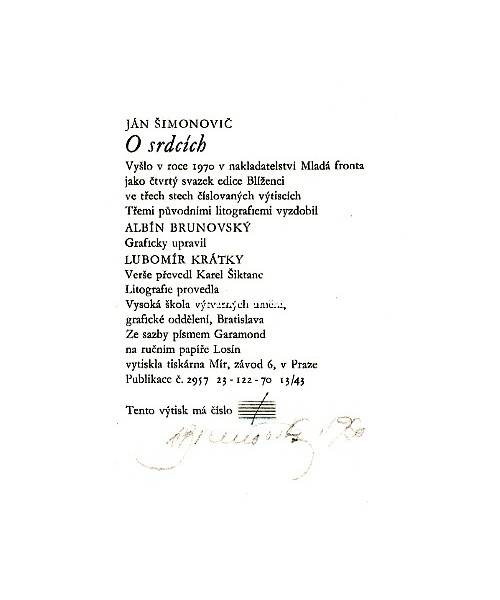 JÁN ŠIMONOVIČ
O srdcích
Vyšlo v roce 1970 v nakladatelství Mladá fronta
jako čtvrtý svazek edice Blíženci
ve třech stech číslovaných výtiscích
Třemi původními litografiemi vyzdobil
ALBÍN BRUNOVSKÝ
Graficky upravil
ĽUBOMÍR KRÁTKY
Verše převedl Karel Šiktanc
Litografie provedla
Vysoká škola výtvarných umění,
grafické oddělení, Bratislava
Ze sazby písmem Garamond
na ručním papíře Losín
vytiskla tiskárna Mír, závod 6, v Praze
Publikace č. 2957 23-122-70 13/43
Tento výtisk má číslo